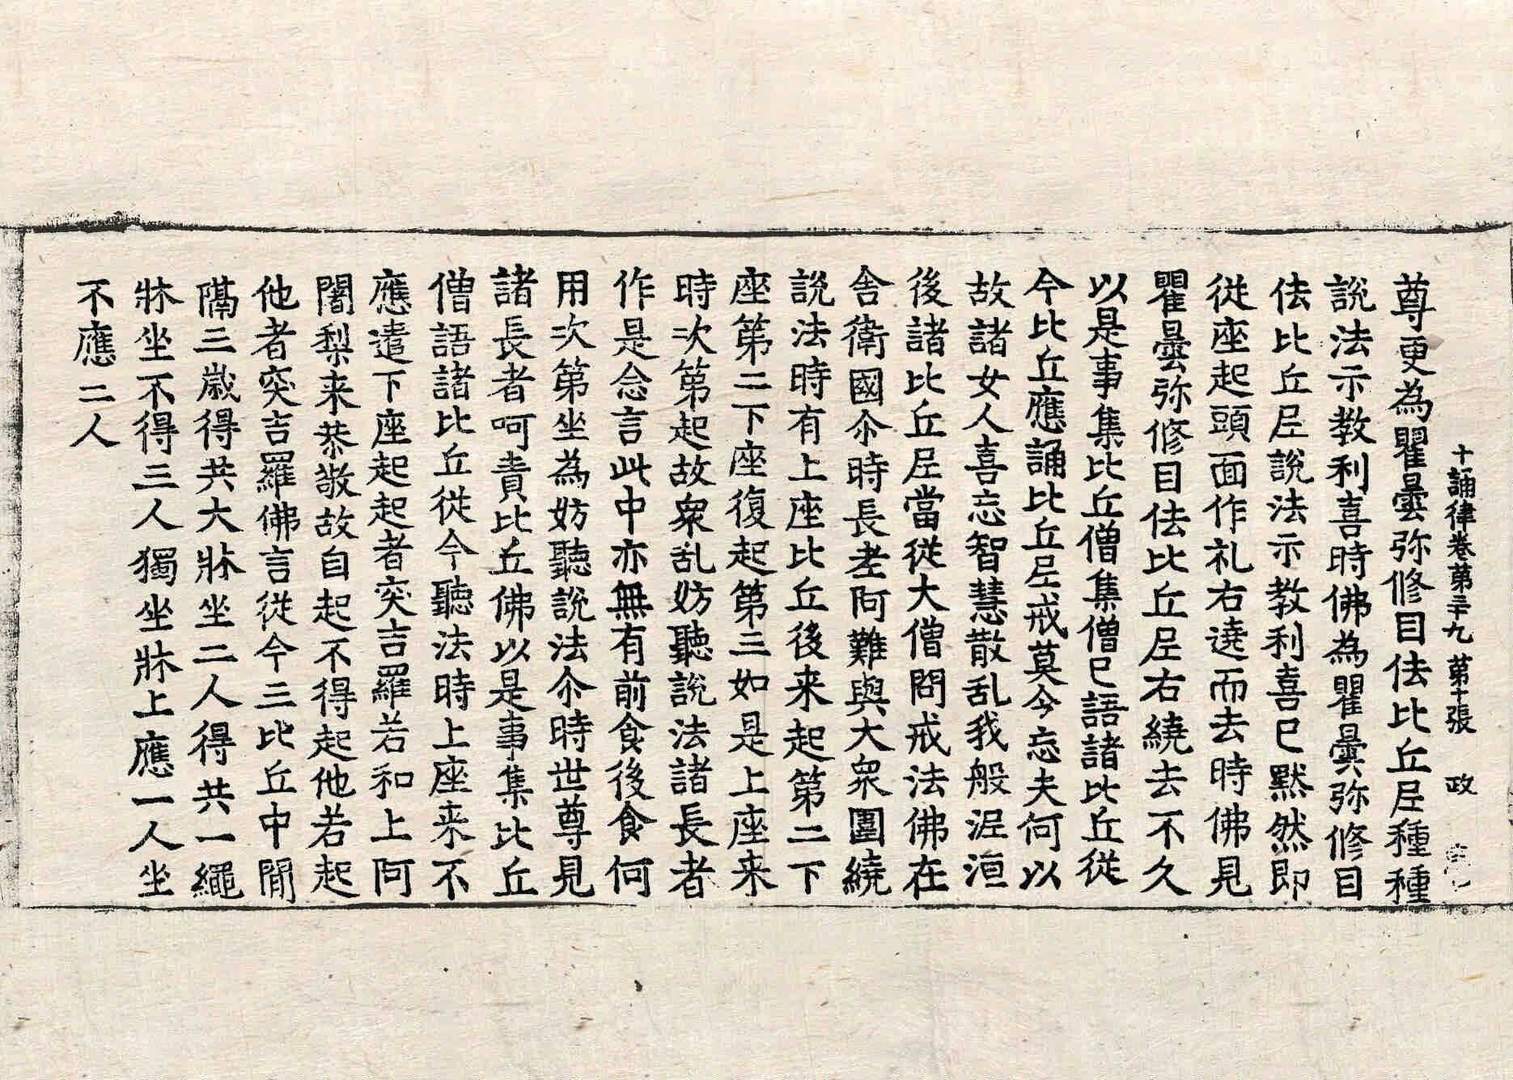 十誦律卷第三十九 第十張 政
尊更為瞿曇弥修目佉比丘尼種種
說法示教利喜時佛為瞿曇弥修目
佉比丘尼說法示教利喜已黙然即
從座起頭面作礼右遶而去時佛見
瞿曇弥修目佉比丘尼右繞去不久
以是事集比丘僧集僧已語諸比丘從
今比丘應誦比丘尼戒莫令忘失何以
故諸女人喜忘智慧散乱我般涅洹
後諸比丘尼當從大僧問戒法佛在
舍衛國尒時長老阿難與大衆圍繞
說法時有上座比丘後来起第二下
座第二下座復起第三如是上座来
時次第起故衆乱妨聽說法諸長者
作是念言此中亦無有前食後食何
用次第坐為妨聽說法尒時世尊見
諸長者呵責比丘佛以是事集比丘
僧語諸比丘從今聽法時上座来不
應遣下座起起者突吉羅若和上阿
闍梨来恭敬故自起不得起他若起
他者突吉羅佛言從今三比丘中閒
隔三歲得共大牀坐二人得共一繩
牀坐不得三人獨坐牀上應一人坐
不應二人